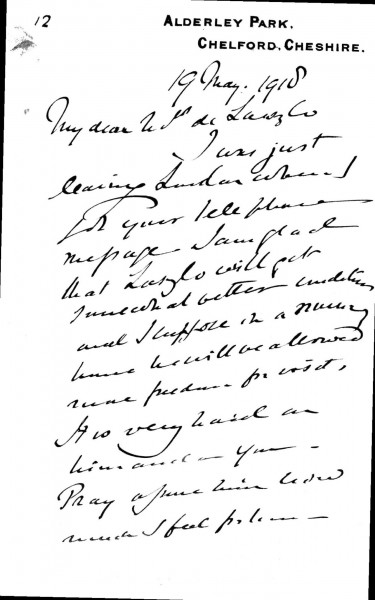 12
ALDERLEY PARK,
CHELFORD, CHESHIRE.
19 May. 1918
My dear Mrs de Laszlo
I was just
leaving London when I
got your telephone
message. I am glad
that Laszlo will get
somewhat better conditions
and I suppose in a nursing
home he will be allowed
more freedom for visits.
It is very hard on
him and on you -
Pray assure him how
much I feel for him -